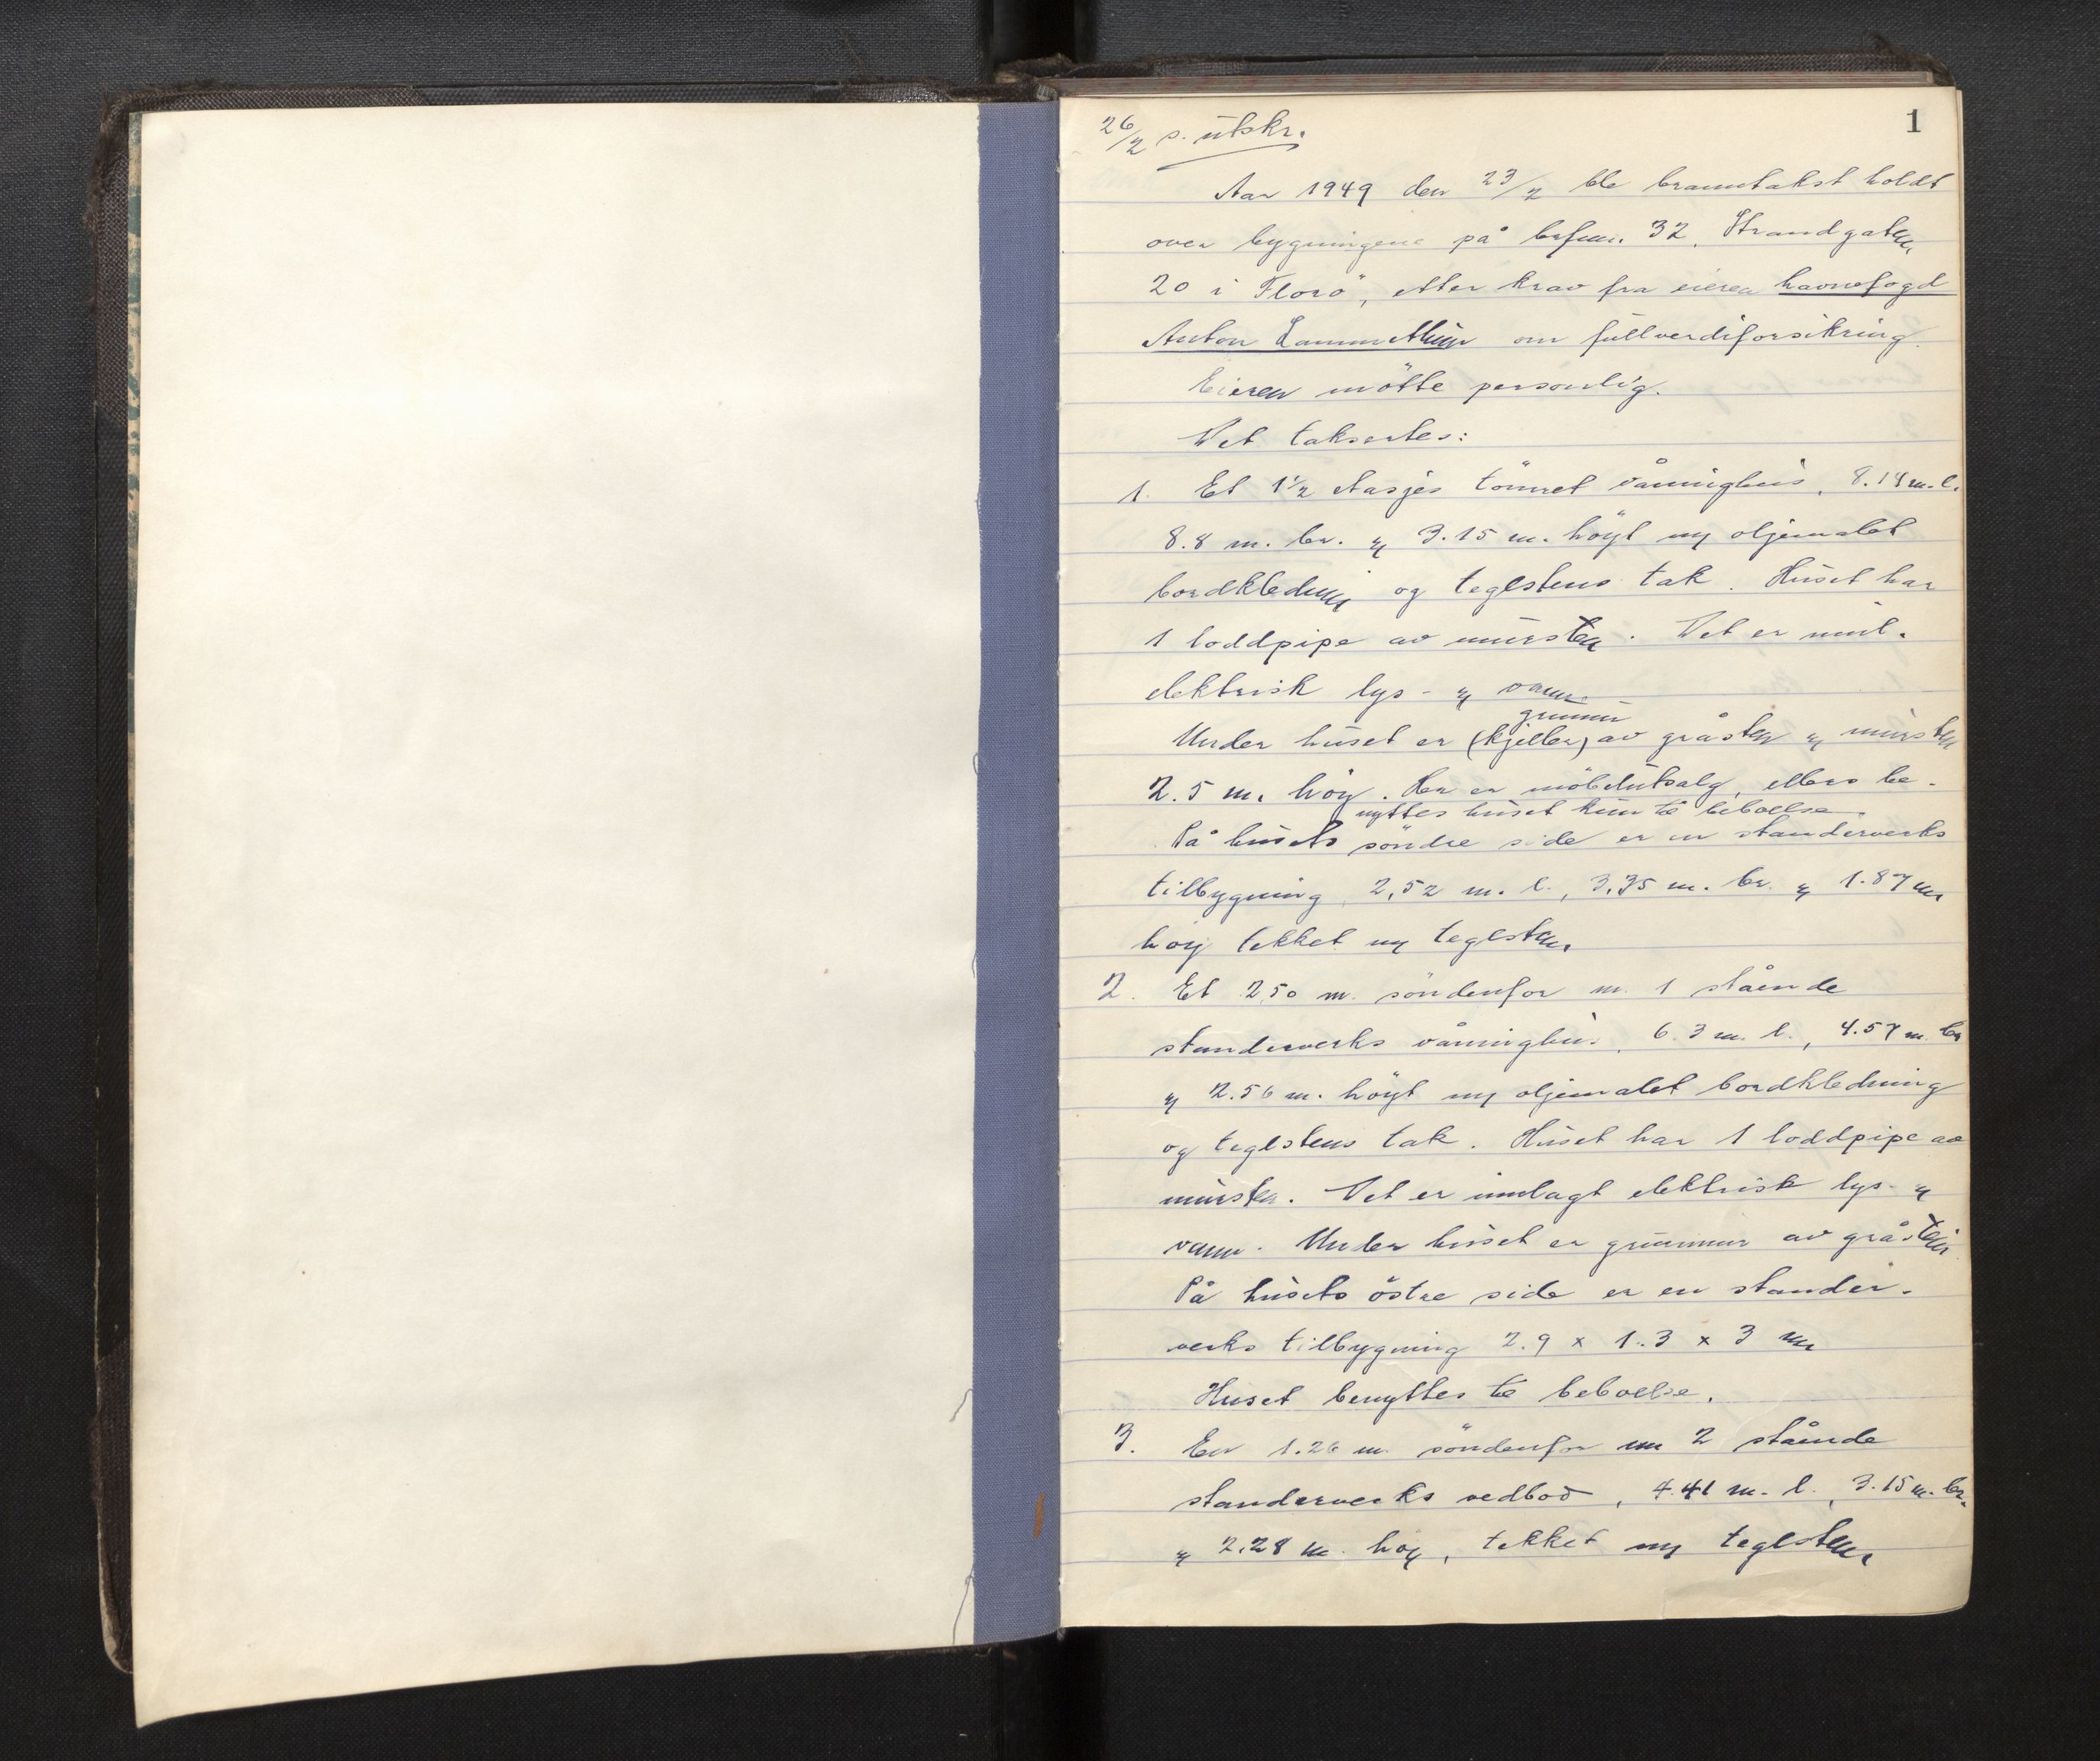 1
26/2 s. utskr.
Aar 1949 den 23/2 ble branntakst holdt
over bygningene på brfnr. 32, Strandgaten
20 i Florö, etter krav fra eieren havnefogd
Anton om fullverdiforsikring.
Eieren mötte personlig.
Det taksertes:
1. Et 1½ etasjes tömret våningshus, 8.14 m. l.
8.8 m. br. og 3.15 m. höyt m/ oljemalet
bordkledning og teglstens tak. Huset har
1 loddpipe av mursten. Det er innl.
elektrisk lys- og vann.
grunnmur
Under huset er (kjeller) av gråsten og mursten
2.5 m. höy. Her er möbelutsalg, ellers be-
nyttes huset kun til beboelse.
På husets söndre side er en standerverks
tilbygning 2,52 m. l., 3,35 m. br. og 1.87 m.
höy tekket m/ teglsten.
2. Et 2,50 m. söndenfor nr. 1 stående
standerverks våningshus, 6.3 m. l., 4.57 m. br
og 2.56 m. höyt m/ oljemalet bordkledning
og teglstens tak. Huset har 1 loddpipe av
mursten. Det er innlagt elektrisk lys- og
vann. Under huset er grunnmur av gråsten
På husets östre side er en stander-
verks tilbygning 2.9 x 1.3 x 3 m.
Huset benyttes til beboelse.
3. En 1.26 m söndenfor nr 2 stående
standerverks vedbod, 4.41 m. l., 3.15 m. br.
og 2.28 m. höy, tekket m/ teglsten.